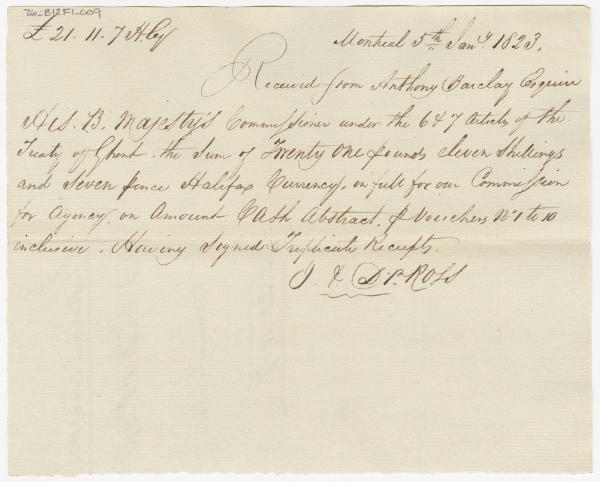 76-B12F1-009
£ 21.11.7 H. Cy
Montreal 5th Jany. 1823.
Received from Anthony Barclay Esquire
His B. Majesty's Commissioner under the 6 & 7 Articles of the
Treaty of Ghent. the Sum of Twenty one pounds eleven Shillings
and Seven pence Halifax Currency, in full for our Commission
for Agency on Amount Cash Abstract, p Vouchers No 1 to 10
inclusive. Having Signed Triplicate Receipts.
J. & D. P. Ross